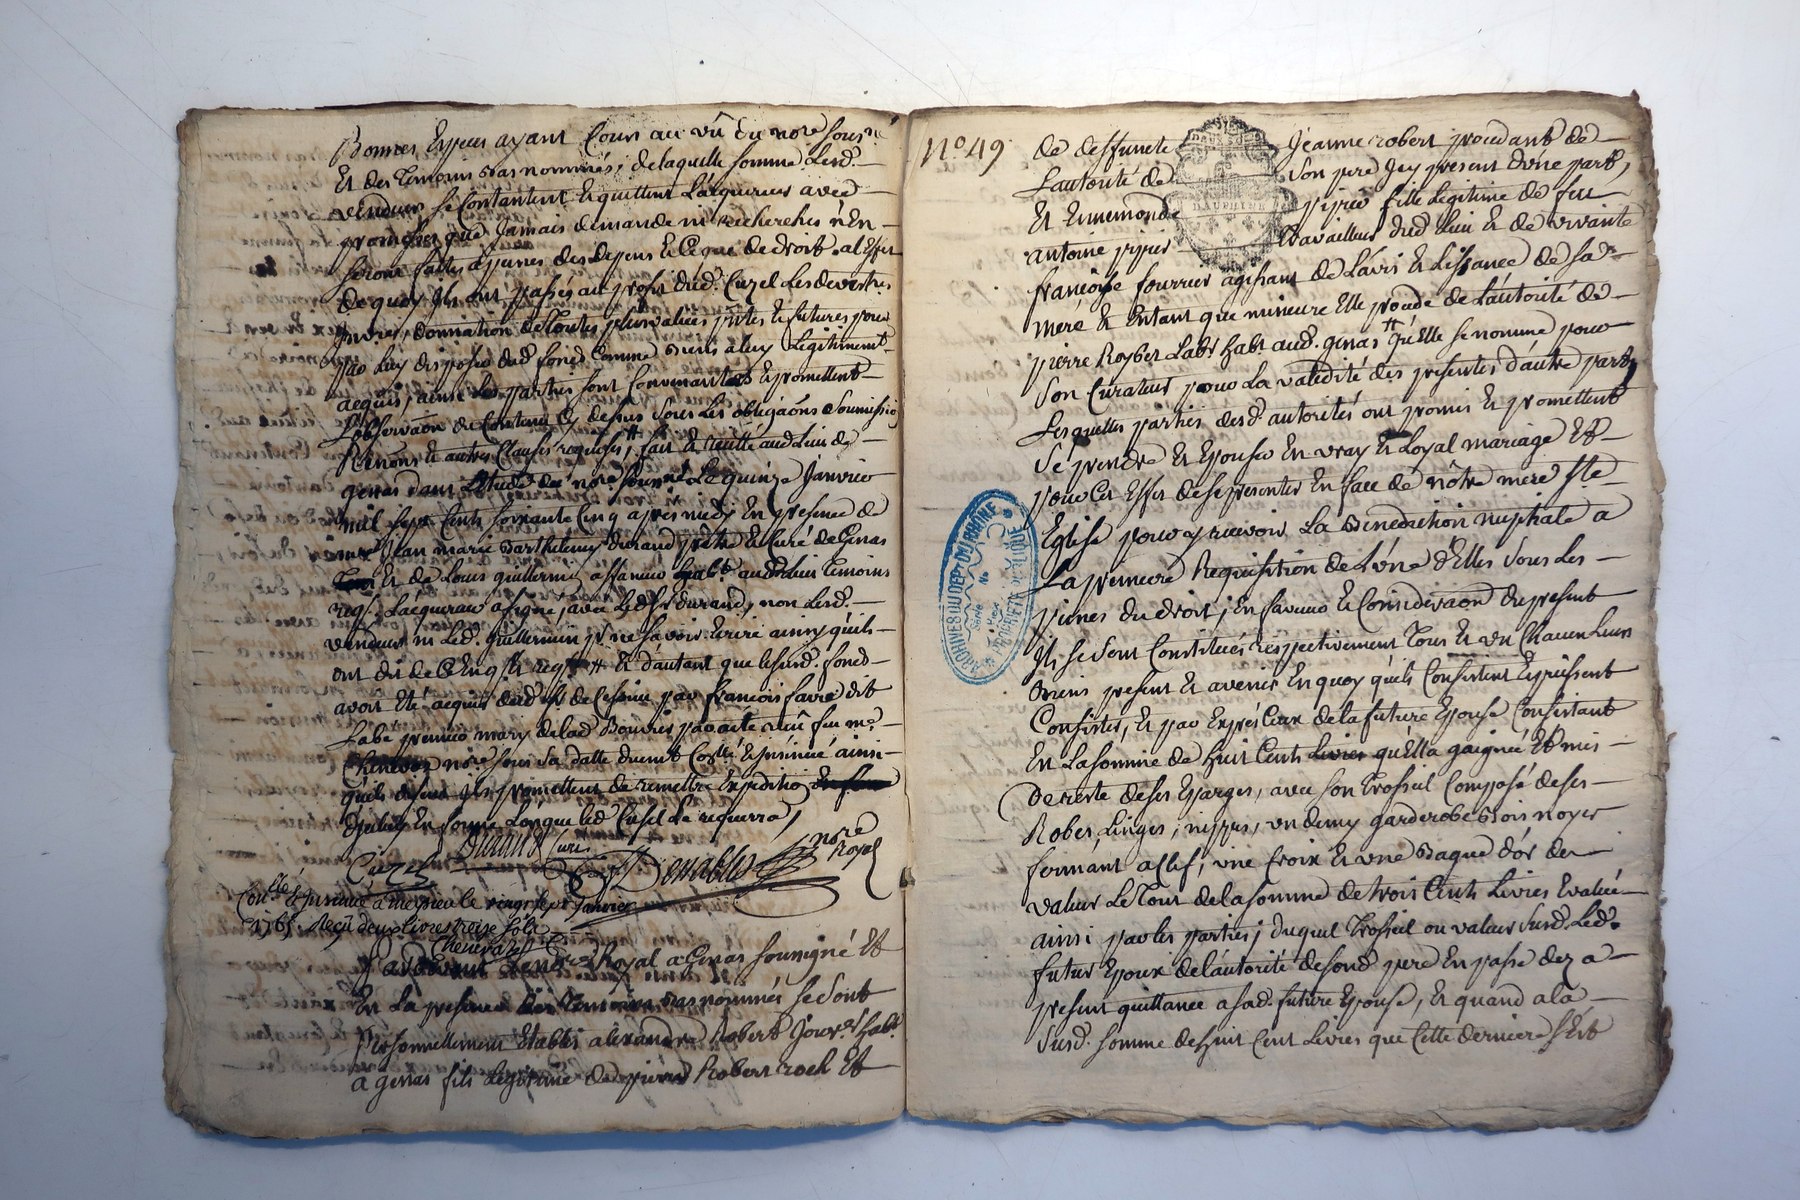 Bonnes Especes ayant Cours au vû du no.re sous.né
Et des temoins bas nommés, de laquelle somme Lesd.
vendeurs se Contantent Et quittent L'acquereur avec
promesse que Jamais demande ni recherches n'En
seront faites a peines des depens Et Ce que de droit, al'Effet
de quoy Ils ont passés au proffit dud. Cuzel Les devestes
Invest, donnation de Toutes plus values prtes Et futures pour
par Luy disposer dud. fond Comme biens a luy Legitimemt
acquis, ainsi Les parties sont Et promettent
L'observaon du Contenu Cy dessus sous Les obligaons soumissio
Renons Et autres Clauses requises, fait Et recitté aud. Lieu de
genas dans L'Etude du no.re sous.né Le quinze Janvier
mil sept Cents soixante Cinq apres midy En presence de
Jean marie Barthelemy durand prêtre Et Curé de Genas
Et de Louis guillermin habt. aud. Lieu Temoins
reqs. L'acquereur a signé avec Led. sr durand, non Lesd.
vendeurs ni Led. guillermin pr ne savoir Ecrire ainsy qu'ils
ont dit de Ce Enqs Et reqs Et d'autant que le susd. fond
avoit Eté acquis dud. par francois favre dit
Labe premier mary de lad. par acte reçu feu me.
no.re sous sa datte duemt Collé Et Insinué ainsi
quils disent Ils promettent de remettre Expeditio
En forme Lorsque led. Cuzel Le requerra,
Cuzel Durand Curé no.re Royal
Collé Et Insinué a le vingt sept Janvier
1765. Reçu deux livres treize sols
Chenevaz
Pardevant Le no.re Royal a Genas soussigné Et
En La presence des Temoins bas nommés se sont
Personnellement Etablis alexandre Robert Jour.er habt.
a genas fils Legitime de pierre Robert Et
N° 49
de deffuncte Jeanne robert procedant de
Lautorité de Son pere Jcy present d'une part,
Et Ennemonde pipier fille Legitime de feu
antoine pipier travailleur dud. Lieu Et de vivante
françoise fourrier agissant de L'avis Et Lissance de sad.
mere Et Entant que mineure Elle procede de L'autorité de
pierre Labr habt. aud. genas qu'Elle se nomme pour
Son Curateur pour La validité des presentes d'autre part,
Lesquelles parties desd. autorités ont promis Et promettent
Se prendre Et Epouser En vray Et Loyal mariage Et
pour Cet Effet de se presenter En face de nôtre mere Ste
Eglise pour y recevoir La Benediction nuptiale a
La premiere Requisition de L'une d'Elles Sous Les
peines du droit, En faveur Et Consideraon du present
Ils se sont Constitués respectivement Tous Et un Chacun Leurs
Biens present Et avenir En quoy qu'ils Consistent Et puissent
Consister, Et par Exprés Ceux de la future Epouse Consistant
En La somme de huit Cents Livres qu'Ella gaignée Et mis
De reste de ses Epargnes, avec son Trosseil Composé de ses
Robes, Linges, nippes, un demy garderobe Bois noyer
fermant a Clef, une Croix Et une Bague d'or de
valeur Le Tout de la somme de trois Cents Livres Evaluée
ainsi par les parties, duquel Trosseil ou valeur Susd. Led.
futur Epoux de L'autorité de sond. pere En passe dez a
present quittance a sad. future Epouse, Et quand a la
Susd. somme de huit Cent Livres que Cette derniere S'est
DAUPHINE
ARCHIVES DU DEPT DU RHONE
PROPRIETE PUBLIQUE